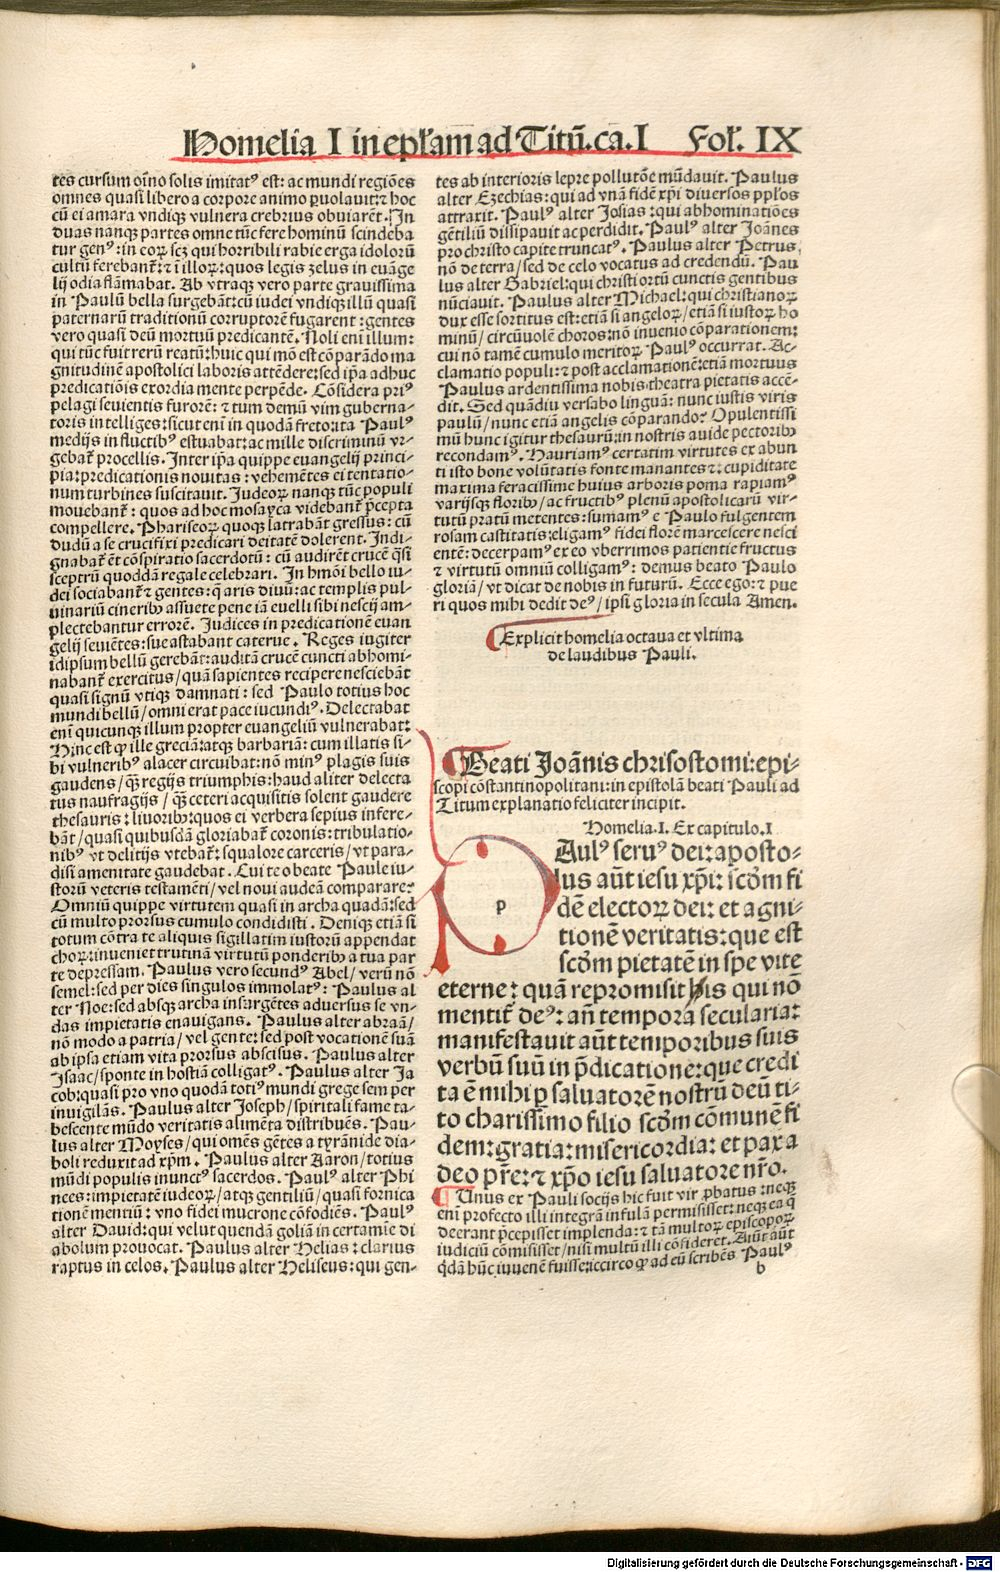 Homelia I in epl̄am ad Titū.ca.I Fol. IX
tes cursum oīno solis imitatꝰ est: ac mundi regiōes
omnes quasi libero a corpore animo ꝑuolauit: ⁊ hoc
cū ei amara vndiqꝫ vulnera crebrius obuiarēt. In
duas nanqꝫ partes omne tūc fere hominū scindeba
tur genꝰ: in eoꝝ scꝫ qui horribili rabie erga idoloꝝ
cultū ferebant᷑: ⁊ ī illoꝝ: quos legis zelus in euāge
lij odia flāmabat. Ab vtraqꝫ vero parte grauissima
in Paulū bella surgebāt: cū iudei vndiqꝫ illū quasi
paternarū traditionū corruptorē fugarent: gentes
vero quasi deū mortuū predicantē. Noli enī illum:
qui tūc fuit rerū reatū: huic qui mō est cōparādo ma
gnitudinē apostolici laboris attēdere: sed ip̄a adhuc
predicatiōis exordia mente perpēde. Cōsidera priꝰ
pelagi seuientis furorē: ⁊ tum demū vim guberna-
toris intelliges: sicut enī in quodā freto: ita Paulꝰ
medijs in fluctibꝰ estuabat: ac mille discriminū vr-
gebat᷑ procellis. Inter ip̄a quippe euangelij princi-
pia: predicationis nouitas: vehemētes ei tentatio-
num turbines suscitauit. Judeoꝝ nanqꝫ tūc populi
mouebant᷑: quos ad hoc mosayca videbant᷑ p̄cepta
compellere. Phariseoꝝ quoqꝫ latrabāt gressus: cū
dudū a se crucifixi predicari deitatē dolerent. Indi-
gnabat᷑ et cōspiratio sacerdotū: cū audirēt crucē q̄si
sceptrū quoddā regale celebrari. In hm̄oi bello iu-
dei sociabant᷑ ⁊ gentes: q̄ aris diuū: ac templis pul-
uinariū cineribꝫ assuete pene iā euelli sibi nescij am-
plectebantur errorē. Judices in predicationē euan
gelij seuiētes: sue astabant caterue. Reges iugiter
idipsum bellū gerebāt: auditā crucē cuncti abhomi-
nabant᷑ exercitus/ quā sapientes recipere nesciebāt
quasi signū vtiqꝫ damnati: sed Paulo totius hoc
mundi bellū/ omni erat pace iucundiꝰ. Delectabat
enī quicunqꝫ illum propter euangeliū vulnerabat:
Hinc est ꝙ ille greciā: atqꝫ barbariā: cum illatis si-
bi vulneribꝰ alacer circuibat: nō minꝰ plagis suis
gaudens/ q̄ꝫ regijs triumphis: haud aliter delecta
tus naufragijs/ q̄ꝫ ceteri acquisitis solent gaudere
thesauris: liuoribꝫ: quos ei verbera sepius infere-
bāt/ quasi quibusdā gloriabat᷑ coronis: tribulatio-
nibꝰ vt delitijs vtebat᷑: squalore carceris/ vt para-
disi amenitate gaudebat. Cui te o beate Paule iu-
storū veteris testamēti/ vel noui audeā comparare:
Omniū quippe virtutem quasi in archa quadā: sed
cū multo prorsus cumulo condidisti. Deniqꝫ etiā si
totum cōtra te aliquis sigillatim iustorū appendat
choꝝ: inueniet trutinā virtutū ponderibꝫ a tua par
te depressam. Paulus vero secundꝰ Abel/ verū nō
semel: sed per dies singulos immolatꝰ: Paulus al
ter Noe: sed absqꝫ archa insurgētes aduersus se vn-
das impietatis enauigans. Paulus alter abraā/
nō modo a patria/ vel gente: sed post vocationē suā
ab ipsa etiam vita prorsus abscisus. Paulus alter
Isaac/ sponte in hostiā colligatꝰ. Paulus alter Ja
cob: quasi pro vno quodā totiꝰ mundi grege semper
inuigilās. Paulus alter Joseph/ spiritali fame ta-
bescente mūdo veritatis alimēta distribuēs. Pau-
lus alter Moyses/ qui omēs gētes a tyrānide dia-
boli reduxit ad xp̄m. Paulus alter Aaron/ totius
mūdi populis inunctꝰ sacerdos. Paulꝰ alter Phi
nees: impietatē iudeoꝝ/ atqꝫ gentiliū/ quasi fornica
tionē mentiū: vno fidei mucrone cōfodiēs. Paulꝰ
alter Dauid: qui velut quendā goliā in certamīe di
abolum prouocat. Paulus alter Helias: clarius
raptus in celos. Paulus alter Heliseus: qui gen-
tes ab interioris lepre pollutōe mūdauit. Paulus
alter Ezechias: qui ad vnā fidē xp̄i diuersos pp̄los
attraxit. Paulꝰ alter Josias: qui abhominatiōes
gētiliū dissipauit ac perdidit. Paulꝰ alter Joānes
pro christo capite truncatꝰ. Paulus alter Petrus,
nō de terra/ sed de celo vocatus ad credendū. Pau
lus alter Gabriel: qui christi ortū cunctis gentibus
nūciauit. Paulus alter Michael: qui christianoꝝ
dux esse sortitus est: etiā si angeloꝝ/ etiā si iustoꝝ ho
minū/ circūuolē choros: nō inuenio cōparationem:
cui nō tamē cumulo meritoꝝ Paulꝰ occurrat. Ac-
clamatio populi: ⁊ post acclamationē: etiā mortuus
Paulus ardentissima nobis theatra pietatis accē-
dit. Sed quādiu versabo linguā: nunc iustis viris
paulū/ nunc etiā angelis cōparando? Opulentissi
mū hunc igitur thesaurū: in nostris auide pectoribꝫ
recondamꝰ. Hauriamꝰ certatim virtutes ex abun
ti isto bone volūtatis fonte manantes ⁊: cupiditate
maxima feracissime huius arboris poma rapiamꝰ
varijsqꝫ floribꝫ/ ac fructibꝰ plenū apostolicarū vir-
tutū pratū metentes: sumamꝰ e Paulo fulgentem
rosam castitatis: eligamꝰ fidei florē marcescere nesci
entē: decerpamꝰ ex eo vberrimos patientie fructus
⁊ virtutū omniū colligamꝰ: demus beato Paulo
gloriā/ vt dicat de nobis in futurū. Ecce ego: ⁊ pue
ri quos mihi dedit deꝰ/ ipsi gloria in secula Amen.
Explicit homelia octaua et vltima
de laudibus Pauli.
Beati Joānis chrisostomi: epi-
scopi cōstantinopolitani: in epistolā beati Pauli ad
Titum explanatio feliciter incipit.
Homelia.I. Ex capitulo.I
p
Aulꝰ seruꝰ dei: aposto-
lus aūt iesu xp̄i: scd̄m fi
dē electoꝝ dei: et agni-
tionē veritatis: que est
scd̄m pietatē in spe vite
eterne: quā repromisit his qui nō
mentit᷑ deꝰ: an̄ tempora secularia:
manifestauit aūt temporibus suis
verbū suū in p̄dicatione: que credi
ta ē mihi ꝑ saluatorē nostrū deū ti-
to charissimo filio scd̄m cōmunē fi
dem: gratia: misericordia: et pax a
deo pr̄e: ⁊ xp̄o iesu saluatore nr̄o.
Unus ex Pauli socijs hic fuit vir ꝓbatus: neqꝫ
enī profecto illi integrā infulā permisisset: neqꝫ ea q̄
deerant p̄cepisset implenda: ⁊ tā multoꝝ episcopoꝝ
iudiciū cōmisisset/ nisi multū illi cōfideret. Aiūt aūt
q̄dā hūc iuuenē fuisse: iccirco ꝙ ad eū scribēs Paulꝰ
b
Digitalisierung gefördert durch die Deutsche Forschungsgemeinschaft - DFG